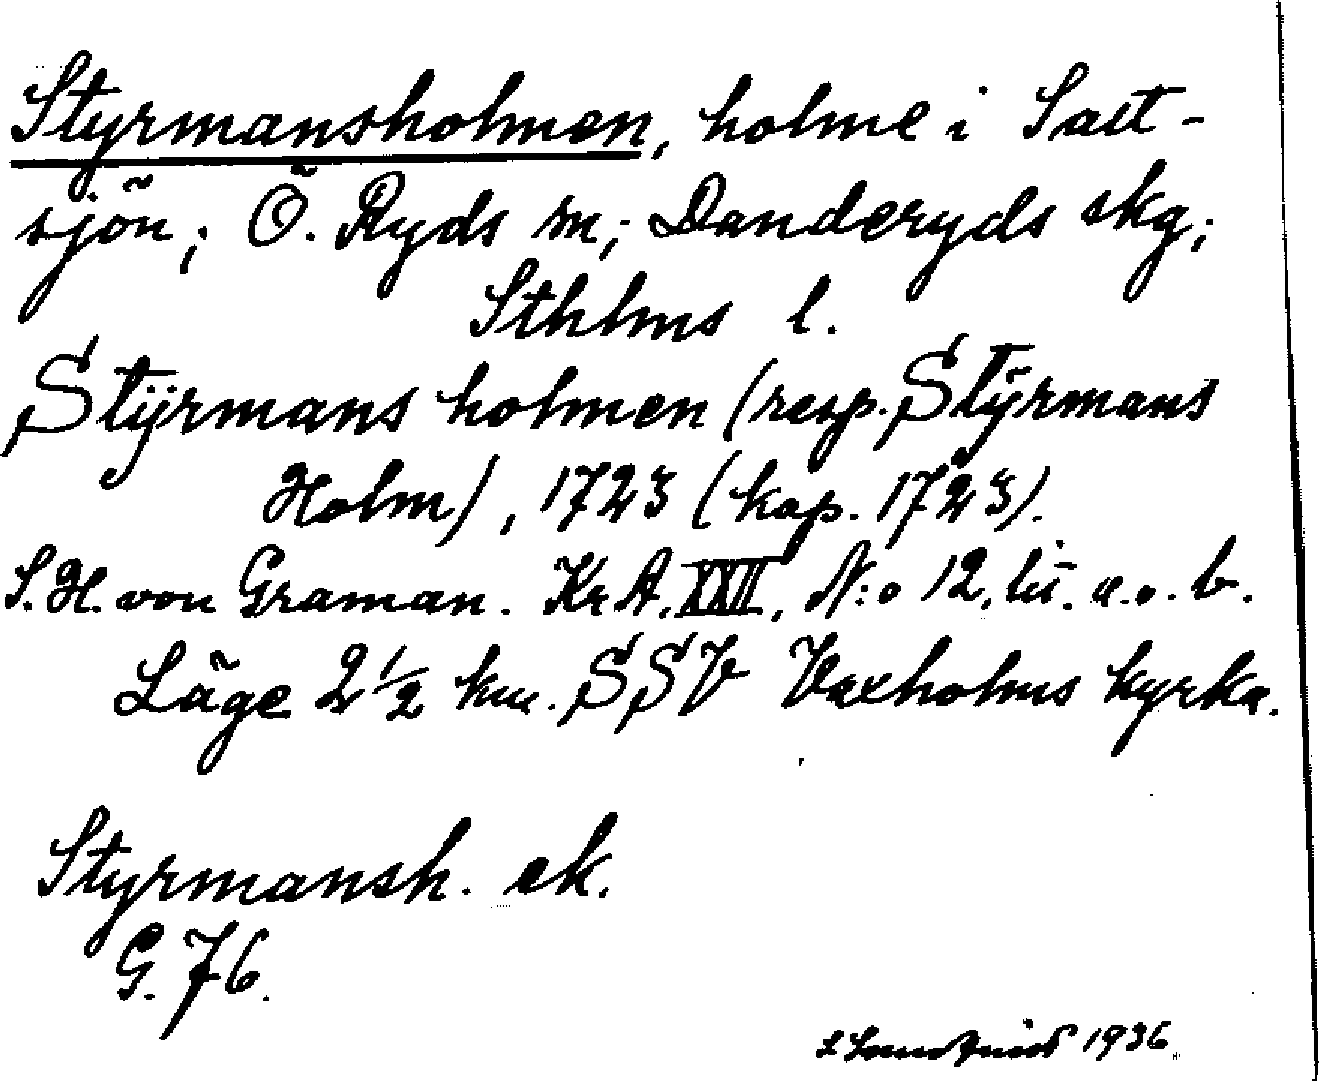 Styrmansholmen, holme i Salt-
sjön; Ö. Ryds sn; Danderyds skg;
Sthlms l.
Stÿrmans holmen (resp. Stÿrmans
Holm), 1723 (kop. 1723).
S. H. von Graman. Kr A. XXII, N:o 12, lit. a. o. b.
Läge 2 1/2 km. SSV Vaxholms kyrka.
Styrmansh. ek.
G. 76.
1936